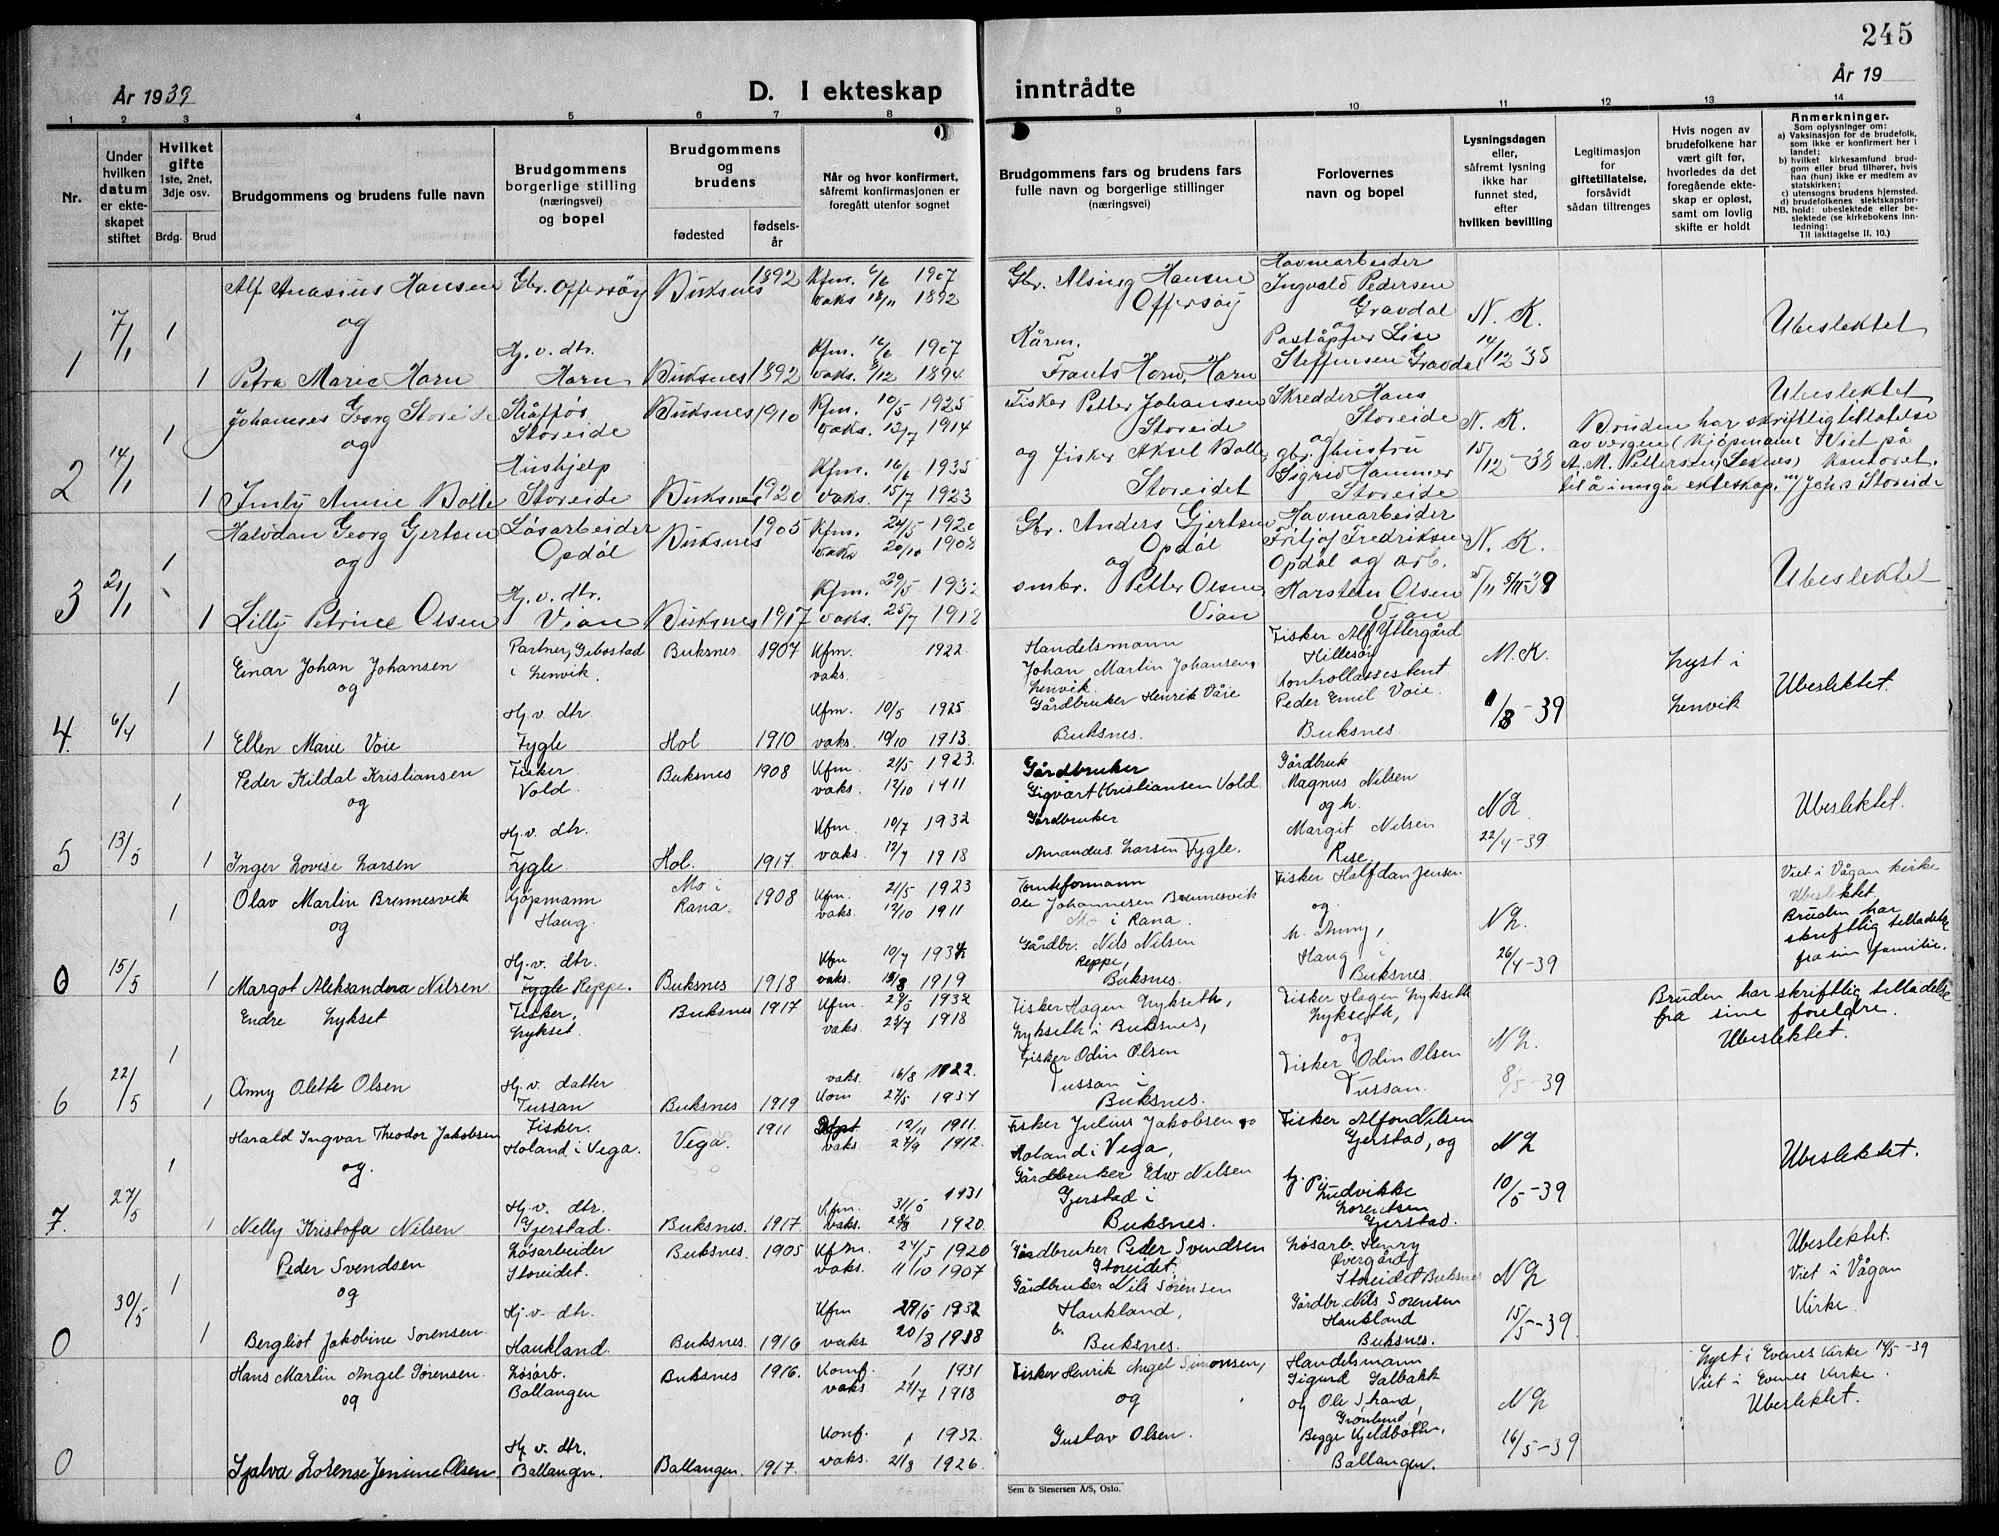 245
År 1939
D. I ekteskap inntrådte
År 19
1 2 3 4 5 6 7 8 9 10 11 12 13 14
Nr.
Under hvilken datum er ekteskapet stiftet
Hvilket gifte 1ste, 2net, 3dje osv.
Brdg. Brud
Brudgommens og brudens fulle navn
Brudgommens borgerlige stilling (næringsvei) og bopel
Brudgommens og brudens
fødested
fødselsår
Når og hvor konfirmert, såfremt konfirmasjonen er foregått utenfor sognet
Brudgommens fars og brudens fars fulle navn og borgerlige stillinger (næringsvei)
Forlovernes navn og bopel
Lysningsdagen eller, såfremt lysning ikke har funnet sted, efter hvilken bevilling
Legitimasjon for giftetillatelse, forsåvidt sådan tiltrenges
Hvis nogen av brudefolkene har vært gift før, hvorledes da det foregående ekteskap er opløst, samt om lovlig skifte er holdt
Anmerkninger.
Som oplysninger om:
a) Vaksinasjon for de brudefolk, som ikke er konfirmert her i landet;
b) hvilket kirkesamfund brudgom eller brud tilhører, hvis han (hun) ikke er medlem av statskirken;
c) utensogns brudens hjemsted.
d) brudefolkenes slektskapsforhold: ubeslektede eller beslektede (se kirkebokens innledning:
NB.
Til iakttagelse II. 10.)
1 7/1 1 Alf Anasius Hansen Gbr. Offersøy Buksnes 1892 Kfm. 6/6 1907
vaks 18/11 1892
Gbr. Alsing Hansen Offersøy
Havnearbeider Ingvald Pedersen Gravdal
og
N. K.
Ubeslektet
1 Petra Marie Horn Hj. v. dtr. Horn Buksnes 1892 Kfm. 16/6 1907
vaks. 9/12 1894
Kårm. Frants Horn, Horn
Lise Steffensen Gravdal
14/12 38
2 14/1 1 Johannes Georg Storeide Storeide Buksnes 1910 Kfm. 10/5 1925
vaks. 13/7 1914
Fisker Petter Johansen Storeide
Skredder Hans Storeide
og
N. K.
Ubeslektet
Bruden har skriftlig tillatelse
av vergen (Kjøpmann Viet på
A. M. Pettersen, Leknes) kontoret.
til å inngå ekteskap. m/ Johs Storeide
og
1 Annie Bolle Hushjelp Storeide Buksnes 1920 Kfm. 16/6 1935
vaks. 15/7 1923
og fisker Aksel Bolle Storeidet
gbr. hustru Sigrid Hammer Storeide
15/12-38
3 21/1 1 Halvdan Georg Gjertsen Løsarbeider Opdøl Buksnes 1905 Kfm. 24/5 1920
vaks 20/10 1908
Gbr. Anders Gjertsen Opdøl
og
Havnearbeider Fritjof Fredriksen Opdøl og arb.
N. K.
Ubeslektet
og
1 Lilly Petrine Olsen Hj. v. dtr. Vian Buksnes 1917 Kfm. 29/5 1932
vaks. 25/7 1918
smbr. Petter Olsen Vian
Karsten Olsen Vian
4. 6/4 1 Einar Johan Johansen Partner, Gibostad i Lenvik. Buksnes 1907 Kfm. 1922
vaks.
Handelsmann Johan Martin Johansen, Lenvik.
Fisker Alf Yttergård Hillesøy
N. K.
Lyst i Lenvik
Ubeslektet.
og
1 Ellen Marie Voie Hj. v. dtr Fygle Hol 1910 Kfm. 10/5 1925
vaks. 19/10 1913.
Gårdbruker Henrik Våie Buksnes.
Kontrollassistent Peder Emil Voie Buksnes
1/3-39
5 13/5 1 Peder Kildal Kristiansen Fisker Vold. Buksnes 1908 Kfm 21/5 1923
vaks. 12/10 1911
Gårdbruker Sigvart Kristiansen Vold.
Gårdbruk Magnus Nilsen
og h.
NL
Ubeslektet.
og
1 Inger Lovise Larsen Hj. v. dtr. Fygle Hol. 1917. Kfm. 10/7 1932
vaks. 12/7 1918
Gårdbruker Amandus Larsen Fygle.
Margit Nilsen Rise
22/4-39
0 15/5 1 Olav Martin Brennesvik Kjøpmann Haug. Mo i Rana. 1908 Kfm. 21/5 1923
vaks. 12/10 1911
Tomteformann Ole Johannesen Brennesvik Mo i Rana.
Fisker Halfdan Jensen
og
NL.
Viet i Vågan kirke
Ubeslektet
Bruden har
skriftlig tilladelse
fra sin familie.
og
1 Margot Aleksandera Nilsen Hj. v. dtr. Fygle Reppe. Buksnes 1918 Kfm 10/7 1934
vaks. 1919
Gårdbr. Nils Nilsen Reppe, Buksnes.
Haug i Buksnes.
26/4-39
6 22/5 1 Endre Lykset Fisker, Lykset. Buksnes 1917 Kfm. 29/5 1932
vaks. 23/7 1918
Fisker Hagen Lykseth, Lykseth i Buksnes,
Fisker Hagen Lykseth Lykseth,
og
NL.
Bruden har skriftlig tilladelse
fra sine foreldre.
Ubeslektet.
1 Anny Olette Olsen Hj. v. datter Tussan Buksnes 1919 vaks. 16/8 1922.
Kom 27/5 1934
Fisker Odin Olsen Tussan i Buksnes.
Fisker Odin Olsen Tussan.
8/5-39
7. 27/5 1 Harald Ingvar Theodor Jakobsen Fisker. Holand i Vega. Vega. 1911 12/11 1911.
vaks 27/9 1912.
Fisker Julius Jakobsen Holand i Vega,
Fisker Alfon Nilsen Gjerstad, og
NL
Ubeslektet.
og.
1 Nelly Kristofa Nilsen Hj. v. dtr. Gjerstad. Buksnes. 1917. Kfm. 31/5 1931
vaks. 1920.
Gårdbruker Edw Nilsen Gjerstad i Buksnes.
Ludvikke Lorentsen Gjerstad.
10/5-39
0 30/5 1 Peder Svendsen Løsarbeider Storeidet. Buksnes. 1905 Kfm. 24/5 1920
vaks. 11/10 1907
Gårdbruker Peder Svendsen Storeidet,
Løsarb. Henry Øvergård Storeidet Buksnes
NL
Ubeslektet.
Viet i Vågan
Kirke.
og
1 Bergliot Jakobine Sørensen Hj. v. dtr. Haukland. Buksnes. 1916 Kfm 29/5 1932
vaks 20/8 1918
Gårdbruker Nils Sørensen Haukland, Buksnes.
Gårdbr. Nils Sørensen Haukland Buksnes.
15/5-39.
0 Hans Martin Angel Sørensen. Løsarb. Ballangen Buksnes 1916. Konf. 1931
vaks 24/7 1918
Fisker Henrik Angel Simonsen,
og
Handelsmann Sigurd Galbakk
og Ole Strand, Grønlund
NL
Lyst i Evenes Kirke 14/5-39
Viet i Evenes Kirke.
Ubeslektet.
og
Sjalva Lorense Jensine Olsen Hj. v. dtr. Ballangen. Ballangen. 1917. Konf. 1932.
vaks. 21/3 1926.
Gustav Olsen.
Begge Kjeldbotn, Ballangen.
16/5-39
Sem & Stenersen A/S, Oslo.